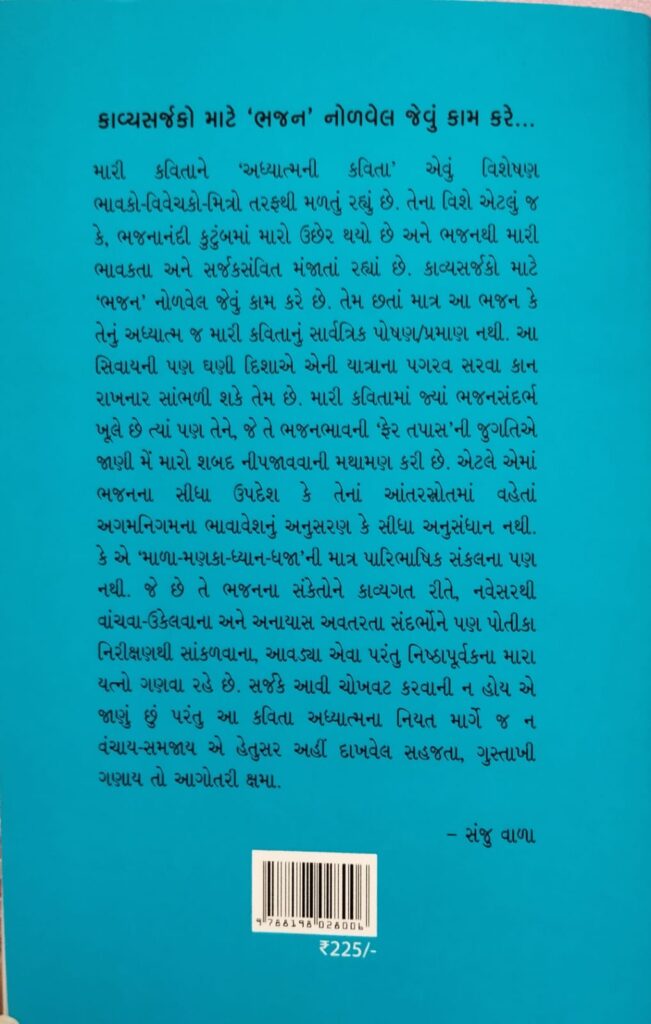 કાવ્યસર્જકો માટે ‘ભજન’ નોળવેલ જેવું કામ કરે...
મારી કવિતાને ‘અધ્યાત્મની કવિતા’ એવું વિશેષણ
ભાવકો-વિવેચકો-મિત્રો તરફથી મળતું રહ્યું છે. તેના વિશે એટલું જ
કે, ભજનાનંદી કુટુંબમાં મારો ઉછેર થયો છે અને ભજનથી મારી
ભાવકતા અને સર્જકસંવિત મંજાતાં રહ્યાં છે. કાવ્યસર્જકો માટે
‘ભજન’ નોળવેલ જેવું કામ કરે છે. તેમ છતાં માત્ર આ ભજન કે
તેનું અધ્યાત્મ જ મારી કવિતાનું સાર્વત્રિક પોષણ/પ્રમાણ નથી. આ
સિવાયની પણ ઘણી દિશાએ એની યાત્રાના પગરવ સરવા કાન
રાખનાર સાંભળી શકે તેમ છે. મારી કવિતામાં જ્યાં ભજનસંદર્ભ
ખૂલે છે ત્યાં પણ તેને, જે તે ભજનભાવની ‘ફેર તપાસ’ની જુગતિએ
જાણી મેં મારો શબદ નીપજાવવાની મથામણ કરી છે. એટલે એમાં
ભજનના સીધા ઉપદેશ કે તેનાં આંતરસ્રોતમાં વહેતાં
અગમનિગમના ભાવાવેશનું અનુસરણ કે સીધા અનુસંધાન નથી.
કે એ ‘માળા-મણકા-ધ્યાન-ધજા’ની માત્ર પારિભાષિક સંકલના પણ
નથી. જે છે તે ભજનના સંકેતોને કાવ્યગત રીતે, નવેસરથી
વાંચવા-ઉકેલવાના અને અનાયાસ અવતરતા સંદર્ભોને પણ પોતીકા
નિરીક્ષણથી સાંકળવાના, આવડ્યા એવા પરંતુ નિષ્ઠાપૂર્વકના મારા
યત્નો ગણવા રહે છે. સર્જકે આવી ચોખવટ કરવાની ન હોય એ
જાણું છું પરંતુ આ કવિતા અધ્યાત્મના નિયત માર્ગે જ ન
વંચાય-સમજાય એ હેતુસર અહીં દાખવેલ સહજતા, ગુસ્તાખી
ગણાય તો આગોતરી ક્ષમા.
– સંજુ વાળા
9 788198 028006
₹225/-